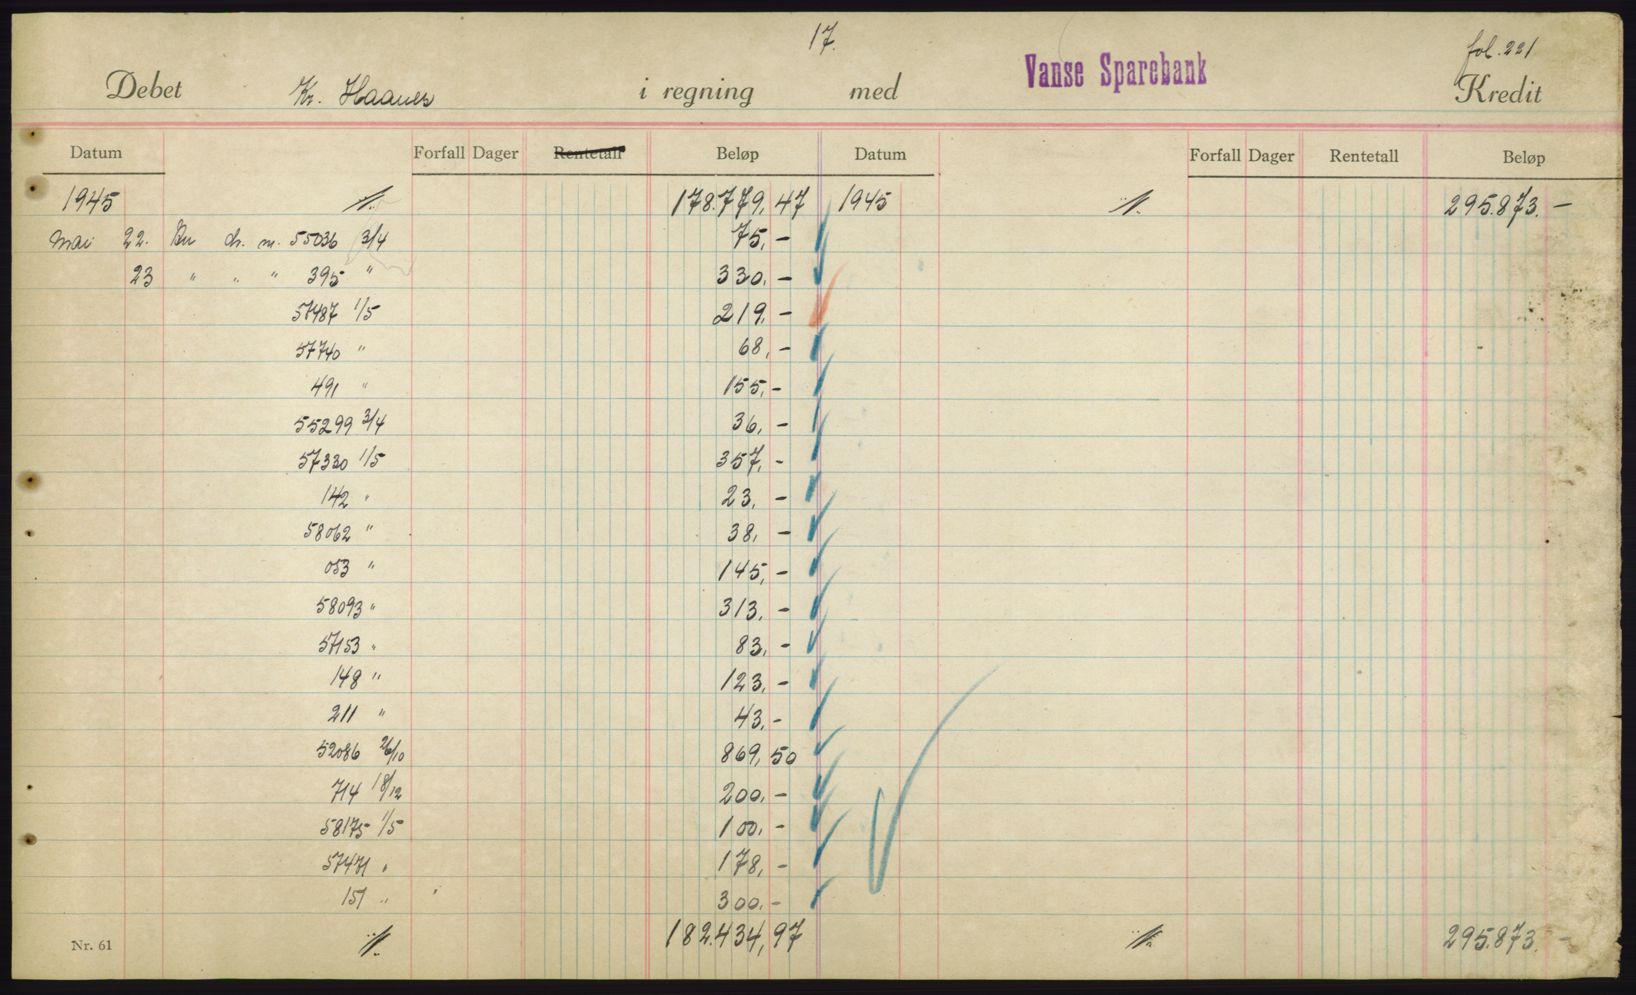 17.
fol. 221
Debet Kr. Haanes i regning med Vanse Sparebank Kredit
Datum Forfall Dager Rentetall Beløp Datum Forfall Dager Rentetall Beløp
1945 178.779,47 1945 295.873.-
Mai 22. ch. nr. 55036 3/4 75,-
23 " " " 395 " 330,-
57487 1/5 219,-
57740 " 68,-
491 " 155,-
55299 3/4 36,-
57330 1/5 357,-
142 " 23,-
58062 " 38,-
053 " 145,-
58093 " 313,-
57153 " 83,-
148 " 123,-
211 " 43,-
52086 26/10 869,50
714 18/12 200,-
58175 1/5 100,-
57471 " 178,-
151 " 300,-
Nr. 61 182.434,97 295.873.-